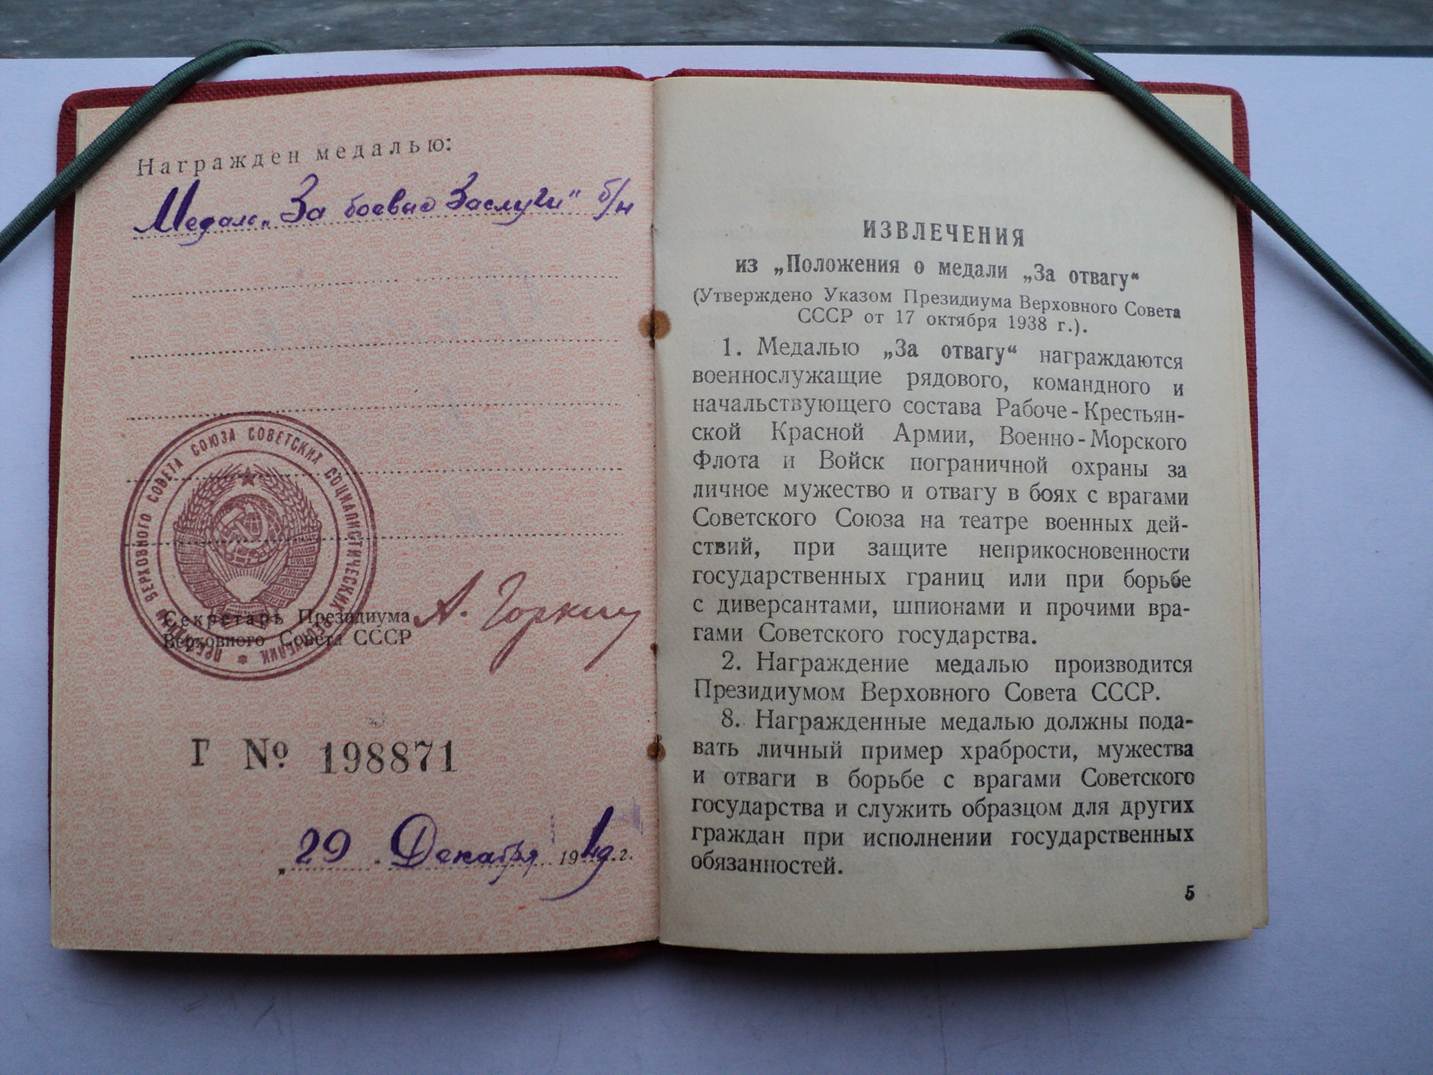 Награжден медалью:
Медаль „За боевые Заслуги" б/н
ПРЕЗИДИУМ ВЕРХОВНОГО СОВЕТА СОЮЗА СОВЕТСКИХ СОЦИАЛИСТИЧЕСКИХ РЕСПУБЛИК *
Секретарь Президиума
Верховного Совета СССР
А. Горкин
Г № 198871
„29 „ Декабря 19 г.
ИЗВЛЕЧЕНИЯ
из „Положения о медали „За отвагу“
(Утверждено Указом Президиума Верховного Совета
СССР от 17 октября 1938 г.).
1. Медалью „За отвагу“ награждаются
военнослужащие рядового, командного и
начальствующего состава Рабоче-Крестьян-
ской Красной Армии, Военно-Морского
Флота и Войск пограничной охраны за
личное мужество и отвагу в боях с врагами
Советского Союза на театре военных дей-
ствий, при защите неприкосновенности
государственных границ или при борьбе
с диверсантами, шпионами и прочими вра-
гами Советского государства.
2. Награждение медалью производится
Президиумом Верховного Совета СССР.
8. Награжденные медалью должны пода-
вать личный пример храбрости, мужества
и отваги в борьбе с врагами Советского
государства и служить образцом для других
граждан при исполнении государственных
обязанностей.
5